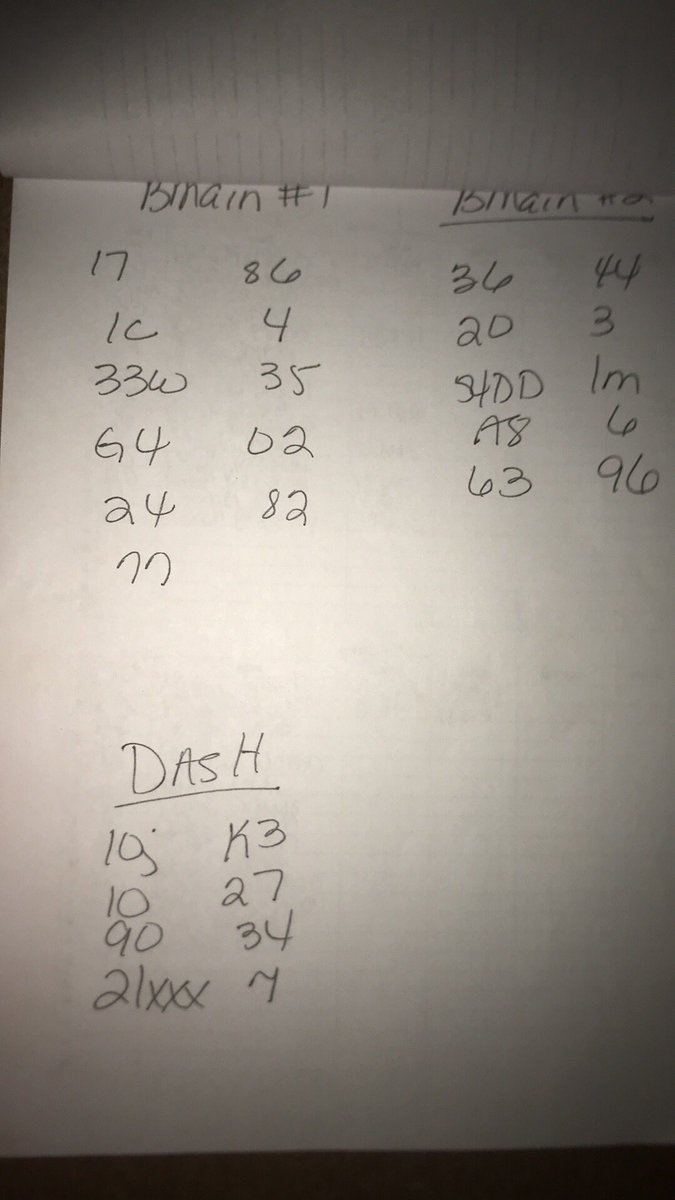 BMain #1
17 86
1c 4
33w 35
G4 02
24 82
77
BMain #2
36 44
20 3
S4DD 1m
A8 6
63 96
DASH
10j K3
10 27
90 34
21xxx 7